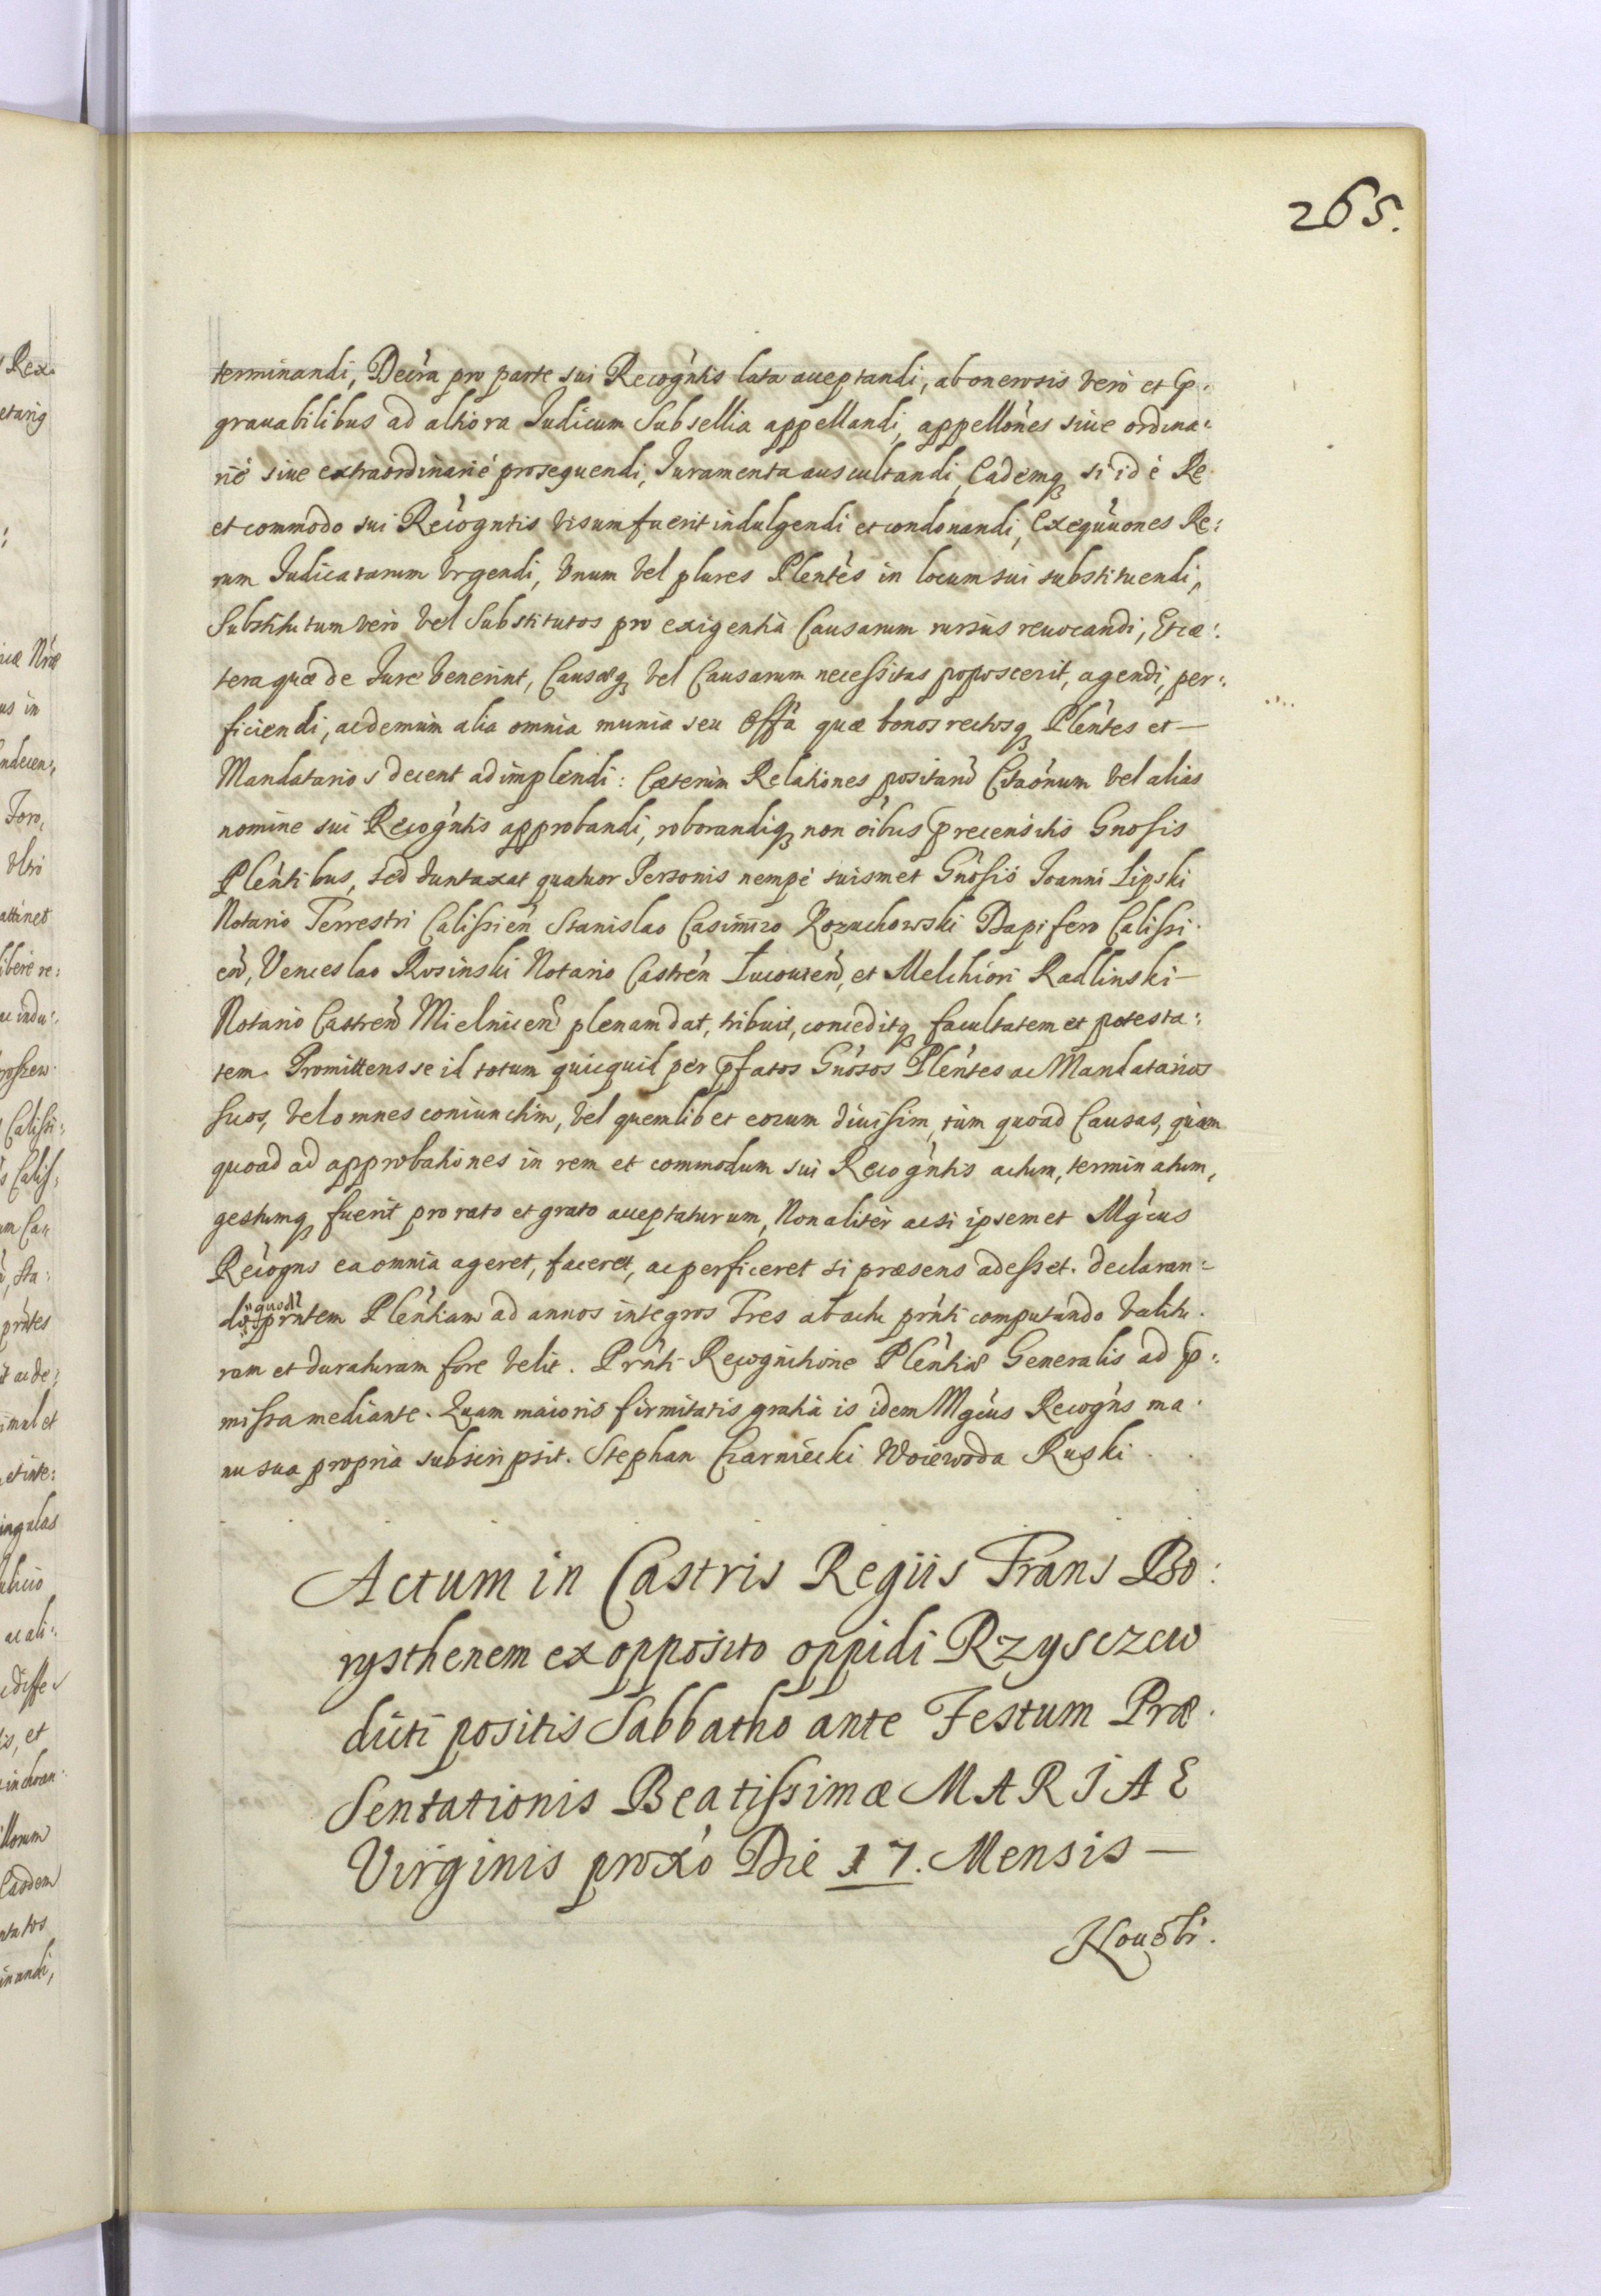 265.
terminandi, Decra pro parte sui Recogntis lata acceptandi, ab onerosis vero et p:
grauabilibus ad altiora Judicum Subsellia appellandi, appellones siue ordina:
rié siue extraordinarié prosequendi, Juramenta auscultandi, Eademq si id é Re
et commodo sui Recogntis visum fuerit indulgendi et condonandi, Exequuones Re:
rum Judicatarum Vrgendi, Vnum vel plures Plentes in locum sui substituendi,
Substitutum vero vel Substitutos pro exigentia Causarum rursus reuocandi, Etcæ:
tera quæ de Jure venerint, Causæq vel Causarum necessitas poposcerit, agendi, per:
ficiendi, ac demum alia omnia munia seu Offa quæ bonos rectosq Plentes et —
Mandatarios decent adimplendi: Cæterum Relationes positarū Citaonum vel alias
nomine sui Recogntis approbandi, roborandiq non oibus precensitis Gnosis
Plentibus, sed duntaxat quatuor Personis nempe suismet Gnosis Joanni Lipski
Notario Terrestri Calissien Stanislao Casimiro Kozuchowski Dapifero Calissi:
en, Venceslao Rosinski Notario Castren Lucorien, et Melchiori Radlinski —
Notario Castren Mielnicen plenam dat, tribuit, conceditq facultatem et potesta:
tem. Promittens se id totum quicquid per pfatos Gnosos Plentes ac Mandatarios
suos, vel omnes coniunctim, vel quemlibet eorum diuisim, tum quoad Causas, quam
quoad ad approbationes in rem et commodum sui Recogntis actum, terminatum,
gestumq fuerit pro rato et grato accepturum, Non aliter ac si ipsemet Mgcus
Recogns ea omnia ageret, faceret, ac perficeret si præsens adesset. declaran:
do quod prntem Plentiam ad annos integros Tres ab actu prnti computando valitu:
ram et duraturam fore velit. Prnti Recognitione Plentiæ Generalis ad p:
missa mediante. Quam maioris firmitatis gratia is idem Mgcus Recogns ma:
nu sua propria subscripsit. Stephan Czarniecki Woiewoda Ruski
Actum in Castris Regiis Trans Bo:
rysthenem ex opposito oppidi Rzysczew
dicti positis Sabbatho ante Festum Præ:
sentationis Beatissimæ MARIAE
Virginis proxo Die 17. Mensis —
Nouobri.